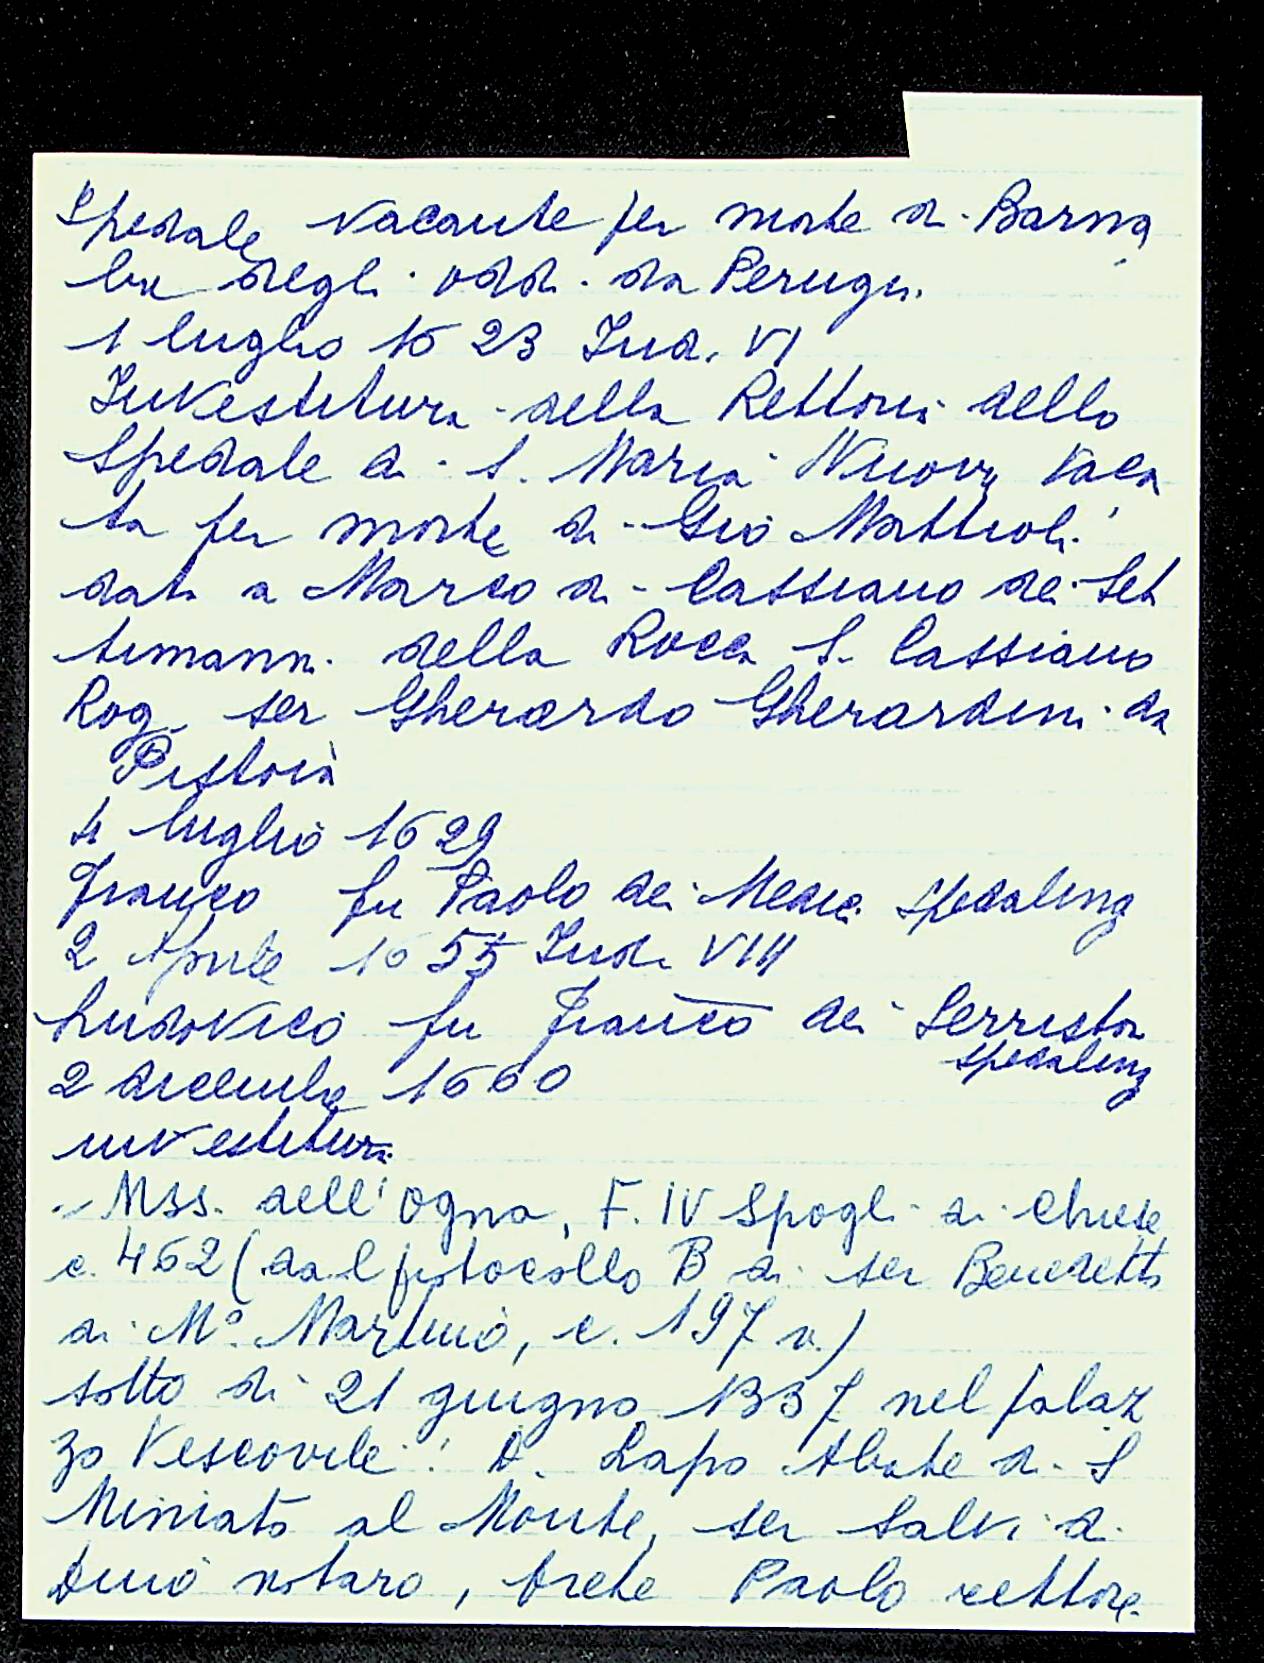 Spedale vacante per morte di Barna
ba degli Oddi da Perugia
1 luglio 1623 Ind. VI
Investitura della Rettoria dello
Spedale di S. Maria Nuova vaca
ta per morte di Gio Mattioli
data a Marco di Cassiano dei Set
timanni della Rocca S. Cassiano
Rog. ser Gherardo Gherardini da
Pistoia
4 luglio 1629
Franco fu Paolo dei Medici spedalingo
2 Aprile 1655 Ind. VIII
Ludovico fu Franco dei Serristori
spedalingo
2 dicembre 1660
investitura
- Mss. dell'Ogna, F. IV Spogli di Chiese
c. 462 (dal protocollo B di ser Benedetto
di M° Martino, c. 197 v.)
sotto di 21 giugno 1337 nel palaz
zo Vescovile: D. Lapo Abate di S
Miniato al Monte, ser Salvi di
Dino notaro, prete Paolo rettore